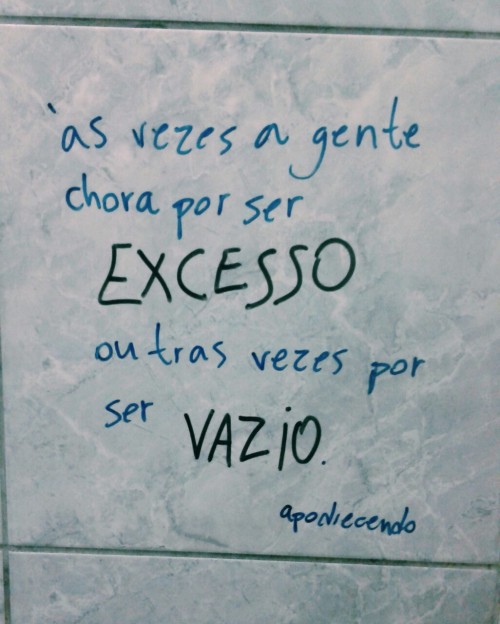 às vezes a gente
chora por ser
EXCESSO
outras vezes por
ser VAZIO.
apodrecendo